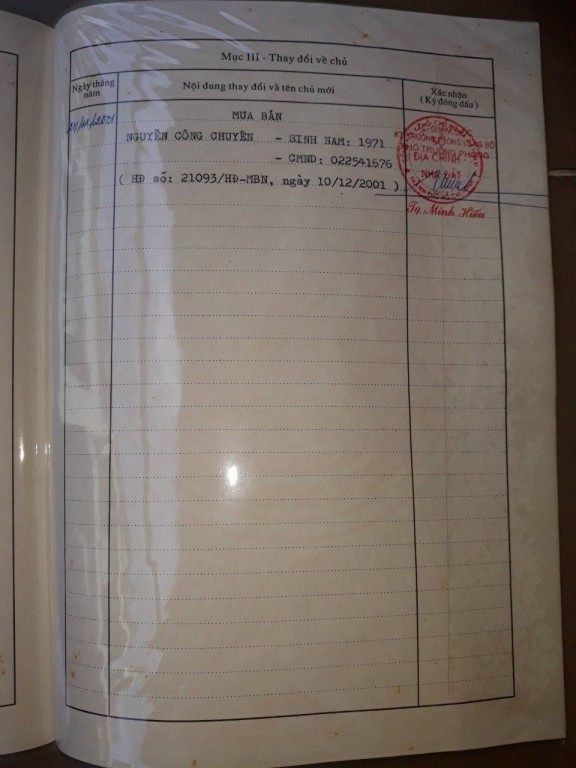 Mục III - Thay đổi về chủ
Ngày tháng năm
Nội dung thay đổi và tên chủ mới
Xác nhận
(Ký đóng dấu)
MUA BÁN
NGUYỄN CÔNG CHUYÊN - SINH NĂM: 1971
- CMND: 022541676
( HĐ số: 21093/HĐ-MBN, ngày 10/12/2001 )
PHÓ TRƯỞNG PHÒNG
ĐỊA CHÍNH
NHÀ ĐẤT
Tạ Minh Hiếu